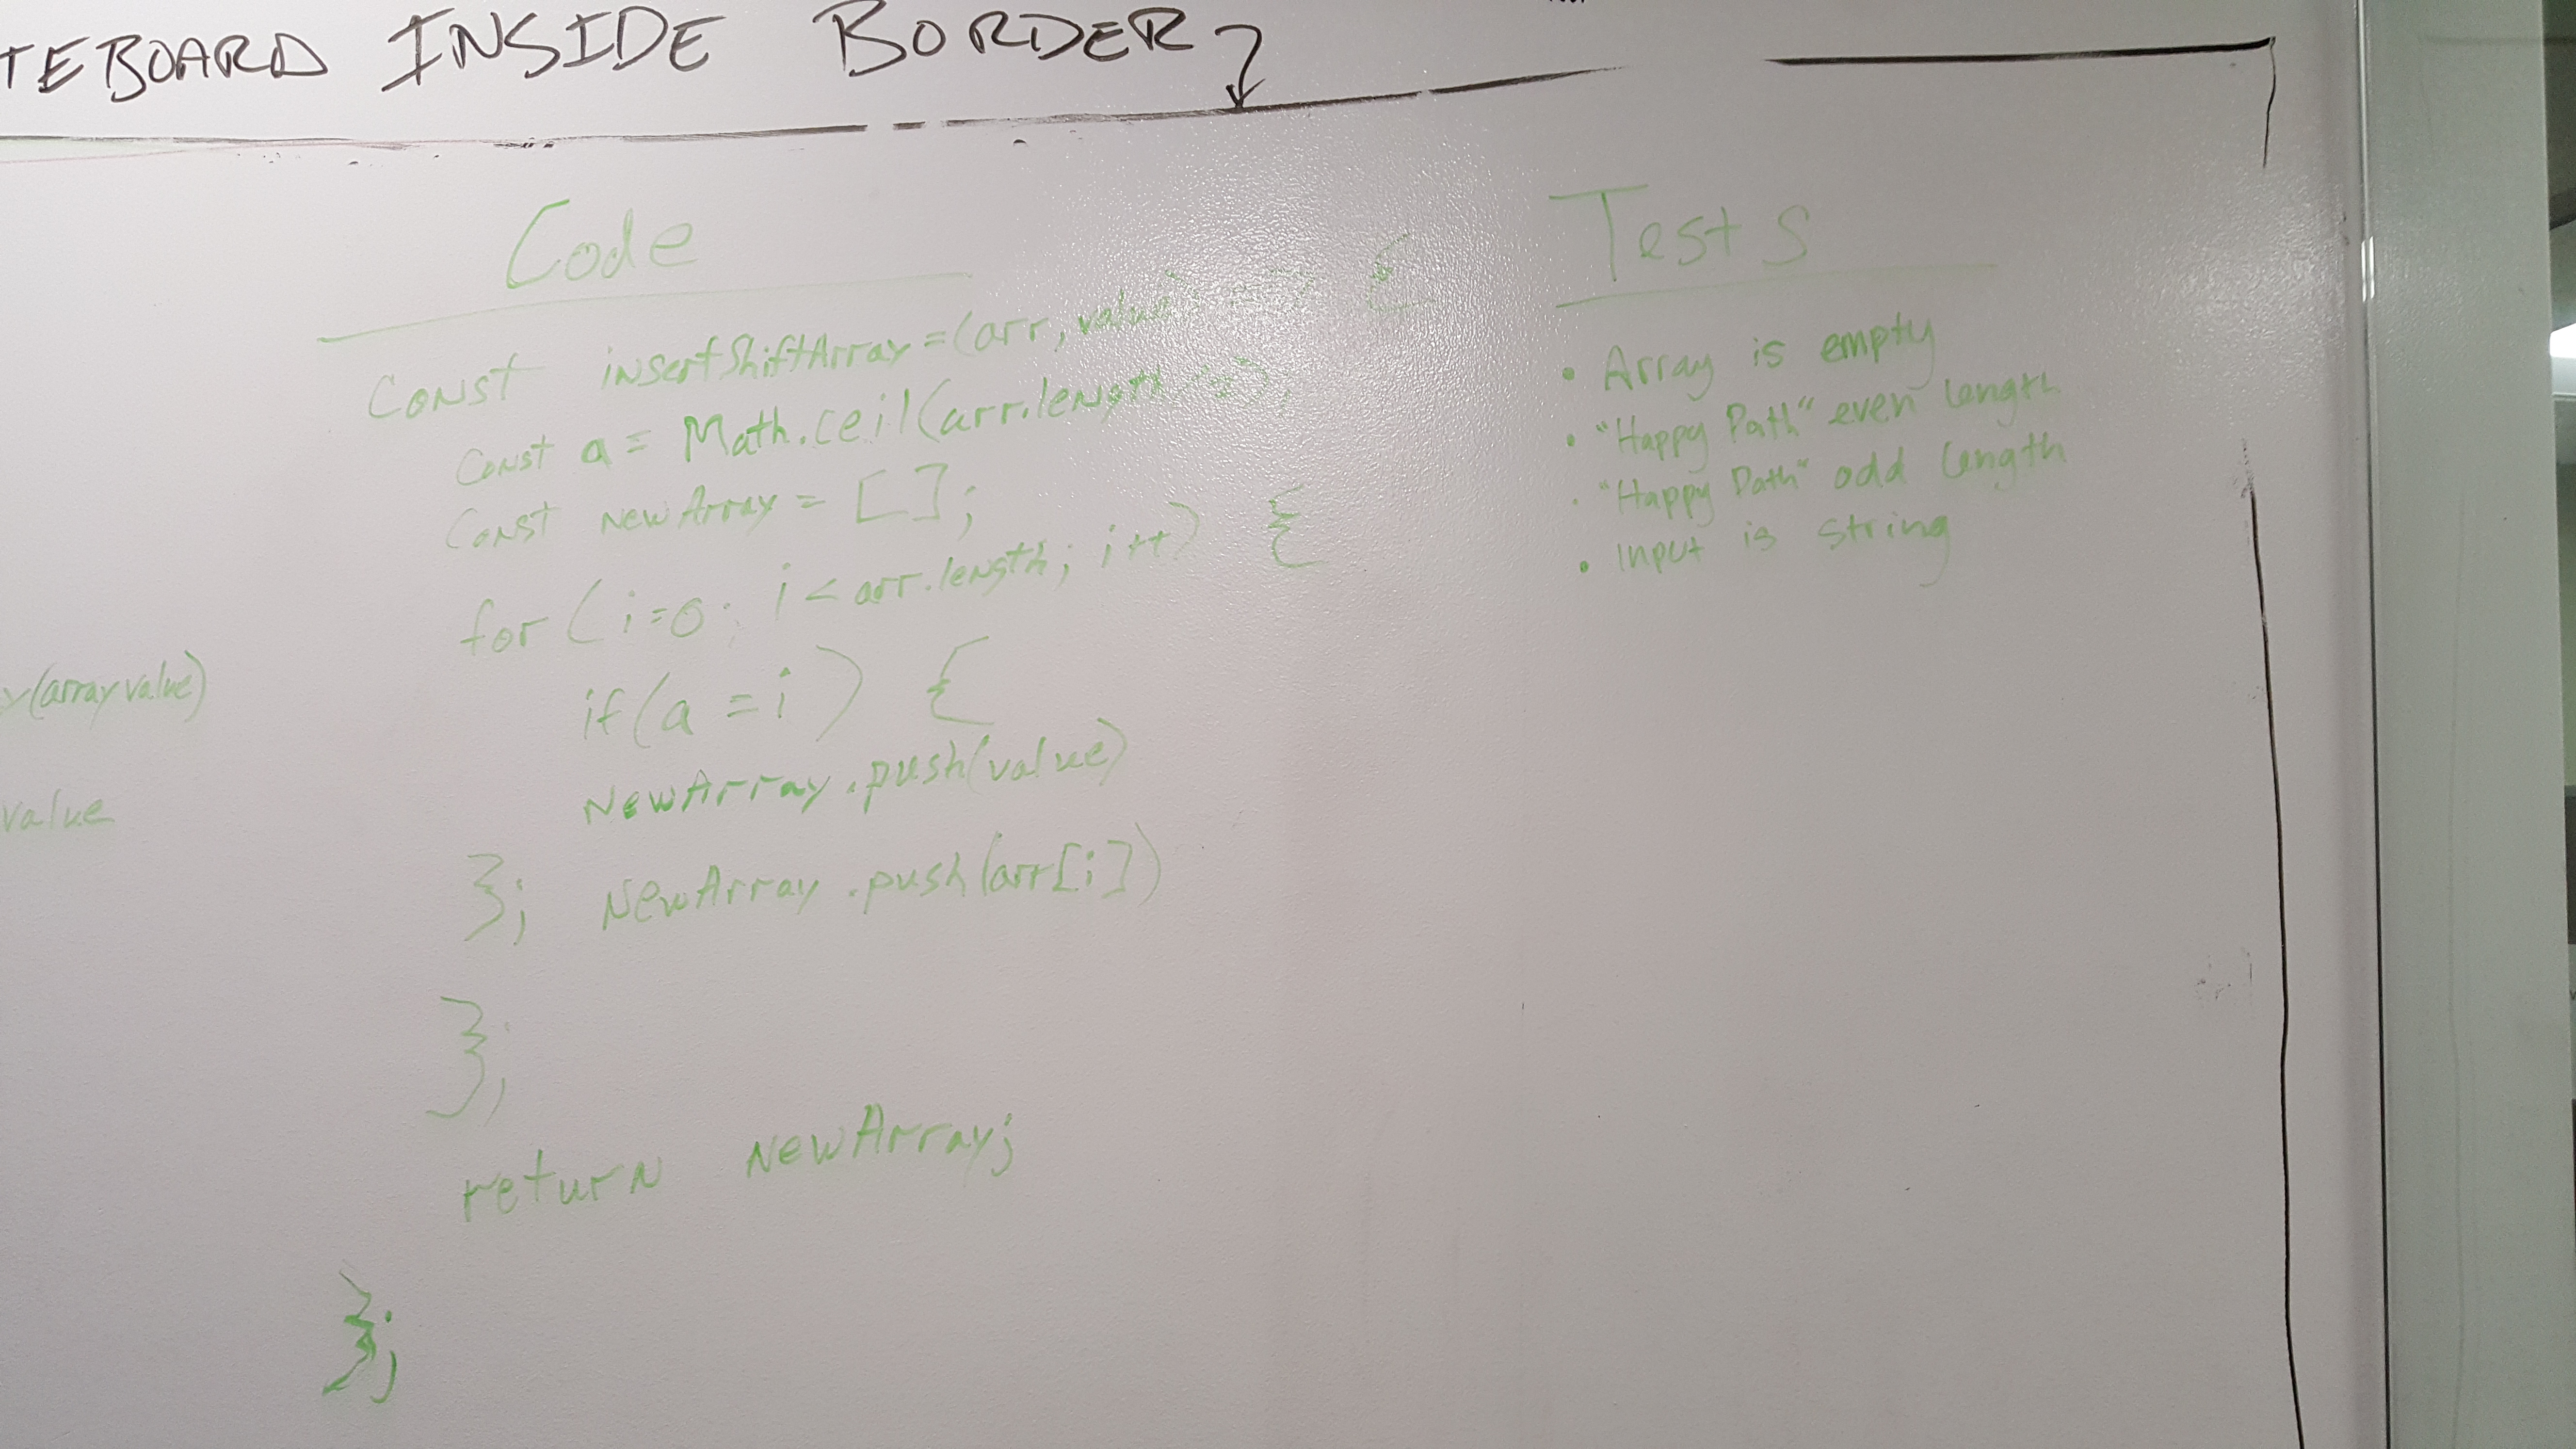 TEBOARD INSIDE BORDER
Code
Const insertShiftArray = (arr, value) => {
Const a = Math.ceil(arr.length/2);
Const newArray = [];
for (i=0; i < arr.length; i++) {
if (a = i) {
NewArray.push(value)
}; NewArray.push(arr[i])
};
return NewArray;
};
Tests
• Array is empty
• "Happy Path" even length
• "Happy Path" odd length
• Input is string
y(array value)
value